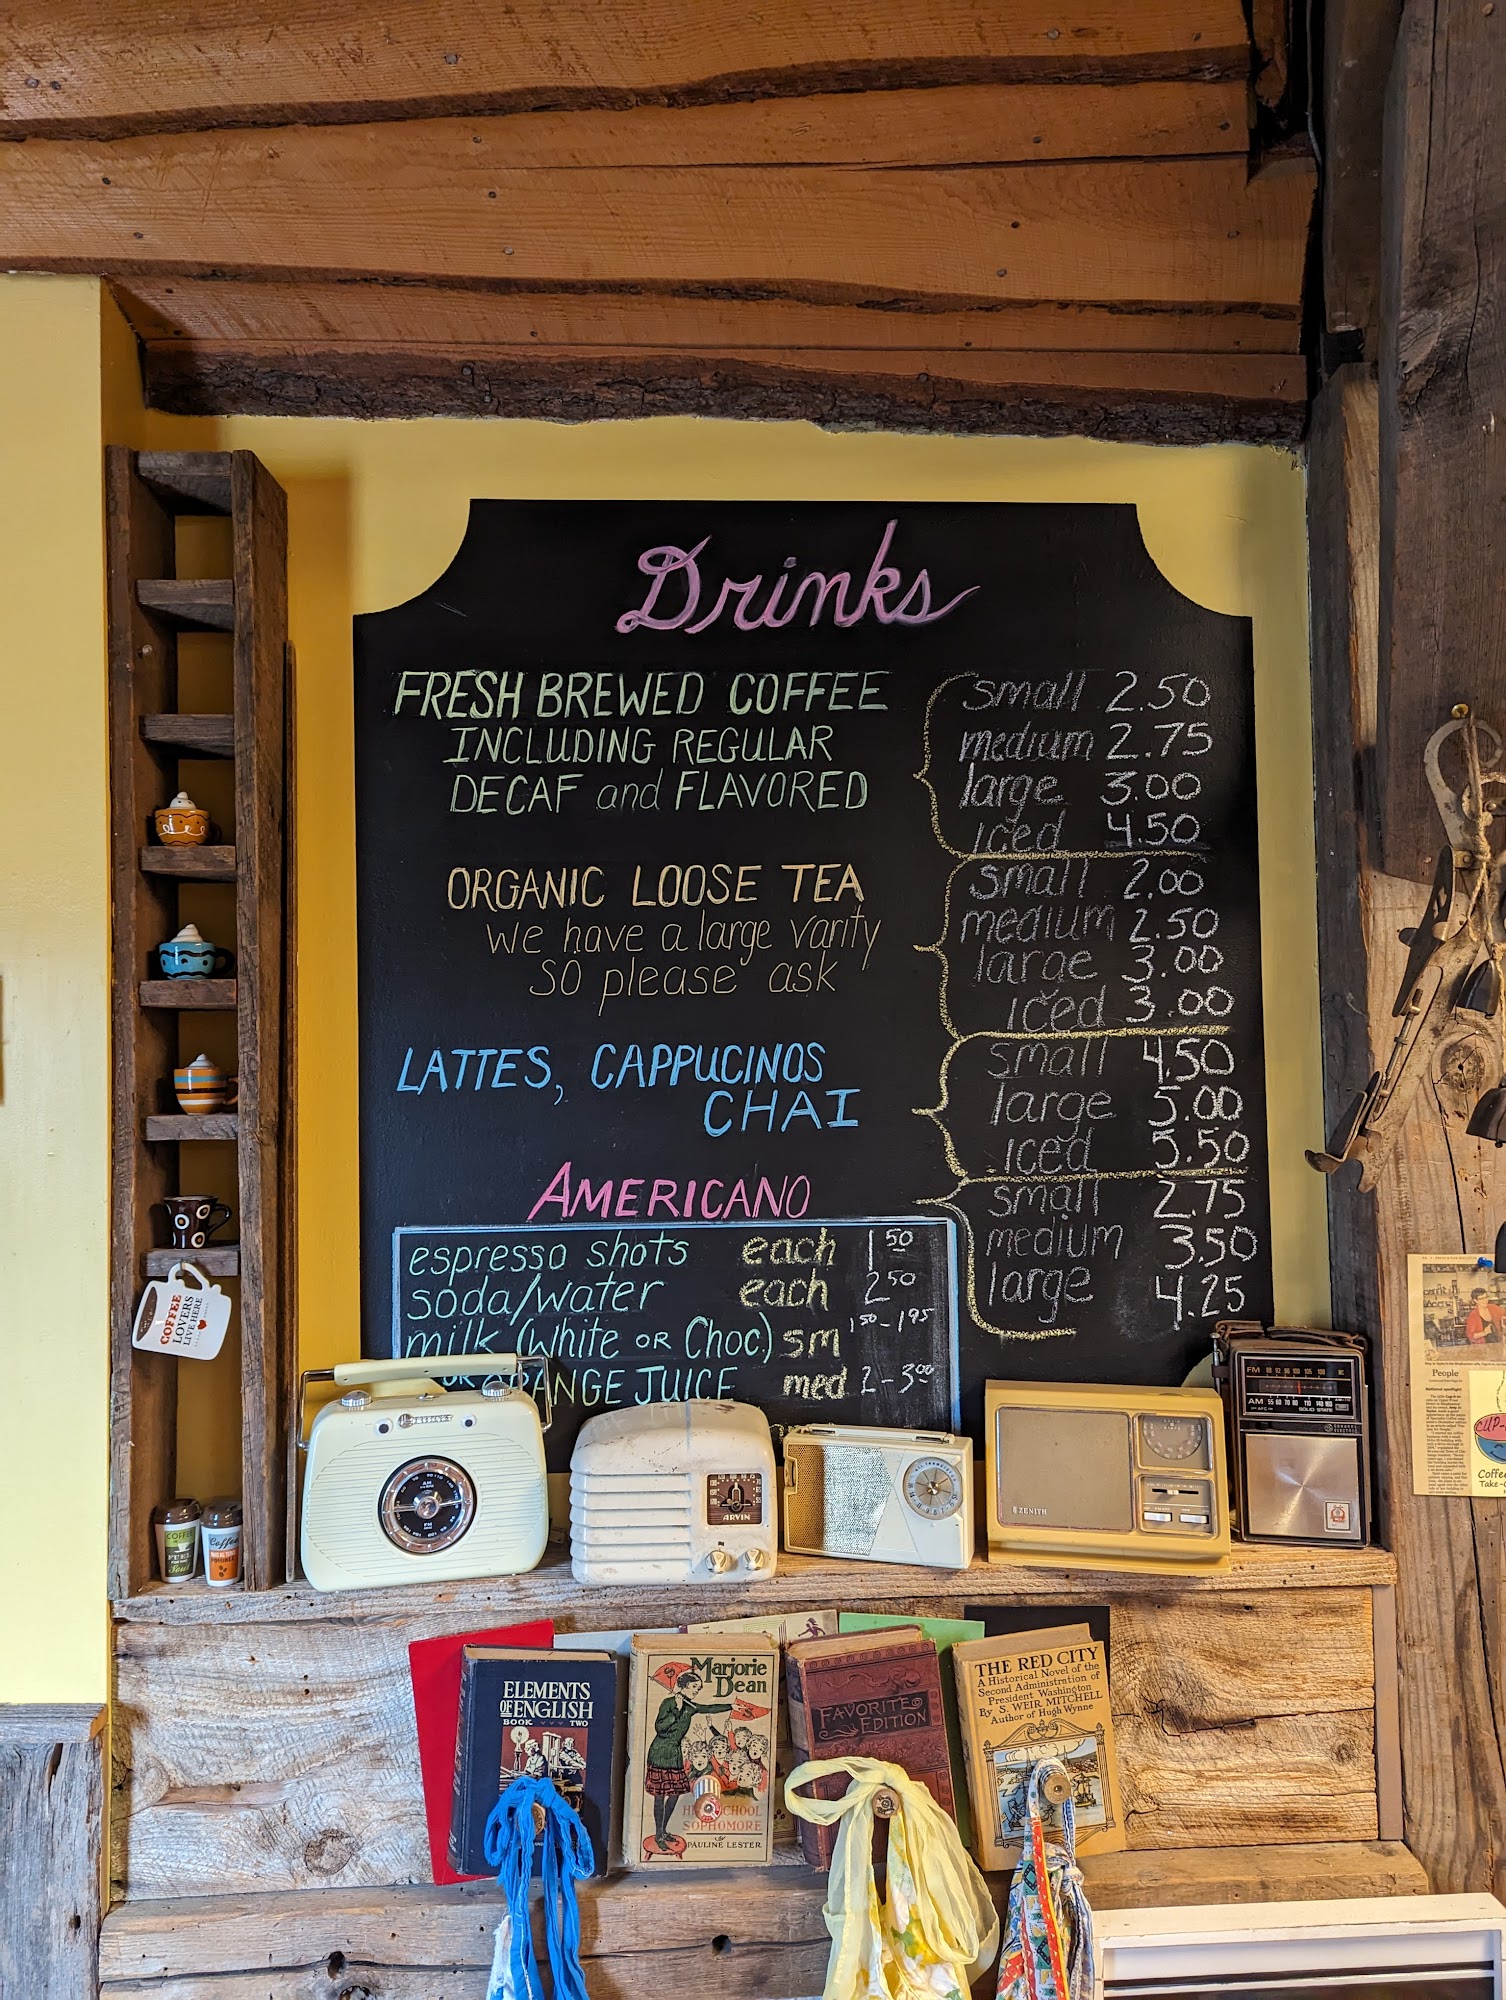 Drinks
FRESH BREWED COFFEE
INCLUDING REGULAR
DECAF and FLAVORED
small 2.50
medium 2.75
large 3.00
iced 4.50
ORGANIC LOOSE TEA
we have a large varity
so please ask
small 2.00
medium 2.50
large 3.00
iced 3.00
LATTES, CAPPUCINOS
CHAI
small 4.50
large 5.00
iced 5.50
AMERICANO
small 2.75
medium 3.50
large 4.25
espresso shots each 1 50
soda/water each 2 50
milk (white OR Choc) sm 1 50 - 1 95
OR ORANGE JUICE med 2 - 3 00
COFFEE
LOVERS
LIVE HERE
COFFEE
FUEL
Coffee
ARVIN
ZENITH
FM 88 92 96 100 105 108
AM 55 60 70 80
SOLID STATE
GENERAL ELECTRIC
ELEMENTS
OF ENGLISH
BOOK TWO
Marjorie
Dean
HIGH SCHOOL
SOPHOMORE
by
PAULINE LESTER
FAVORITE
EDITION
THE RED CITY
A Historical Novel of the
Second Administration of
President Washington
By S. WEIR MITCHELL
Author of Hugh Wynne
People
CUP-
Coffee
Take-